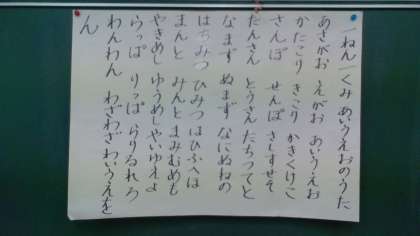 一ねん一くみ あいうえおのうた
あさがお えがお あいうえお
かたこり きこり かきくけこ
さんぽ せんぽ さしすせそ
たんさん とうさん たちつてと
なまず ぬまず なにぬねの
はちみつ ひみつ はひふへほ
まんと みんと まみむめも
やきめし ゆうめし やいゆえよ
らっぱ りっぱ らりるれろ
わんわん わざわざ わいうえを
ん